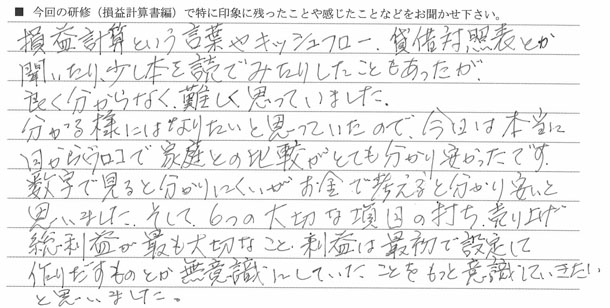 ■ 今回の研修（損益計算書編）で特に印象に残ったことや感じたことなどをお聞かせ下さい。
損益計算という言葉やキッシュフロー、貸借対照表とか
聞いたり、少し本を読でみたりしたこともあったが、
良く分からなく、難しく思っていました。
分かる様にはなりたいと思っていたので、今日は本当に
目からウロコで家庭との比較がとても分かり安かったです。
数字で見ると分かりにくいがお金で考えると分かり安いと
思いました。そして、6つの大切な項目の打ち、売り上げ
総利益が最も大切なこと、利益は最初で設定して
作りだすものとか無意識にしていたことをもっと意識していきたい
と思いました。